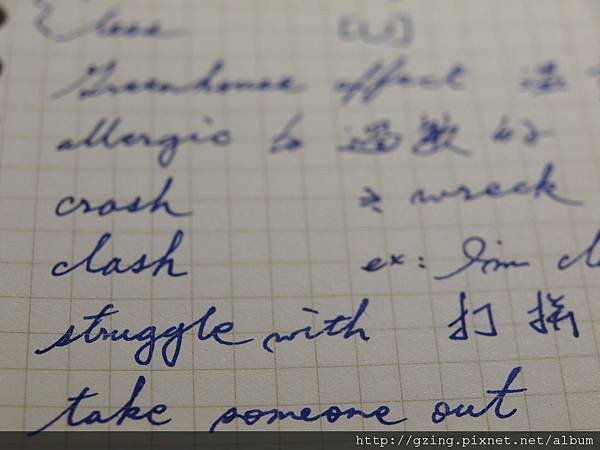 loss [U]
Greenhouse effect
allergic to 過敏的
crash ≥ wreck
clash ex: I'm cl
struggle with 打搞
take someone out
http://gzing.pixnet.net/album